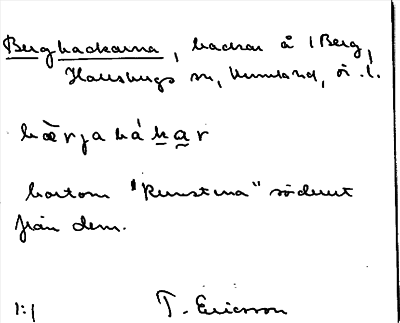 Bergbackarna, backar å 1 Berg,
Hallsbergs sn, Kumla hd, ö. l.
bæ̀rjabákar
bortom "Runstena" söderut
från dem.
1:1 T. Ericsson